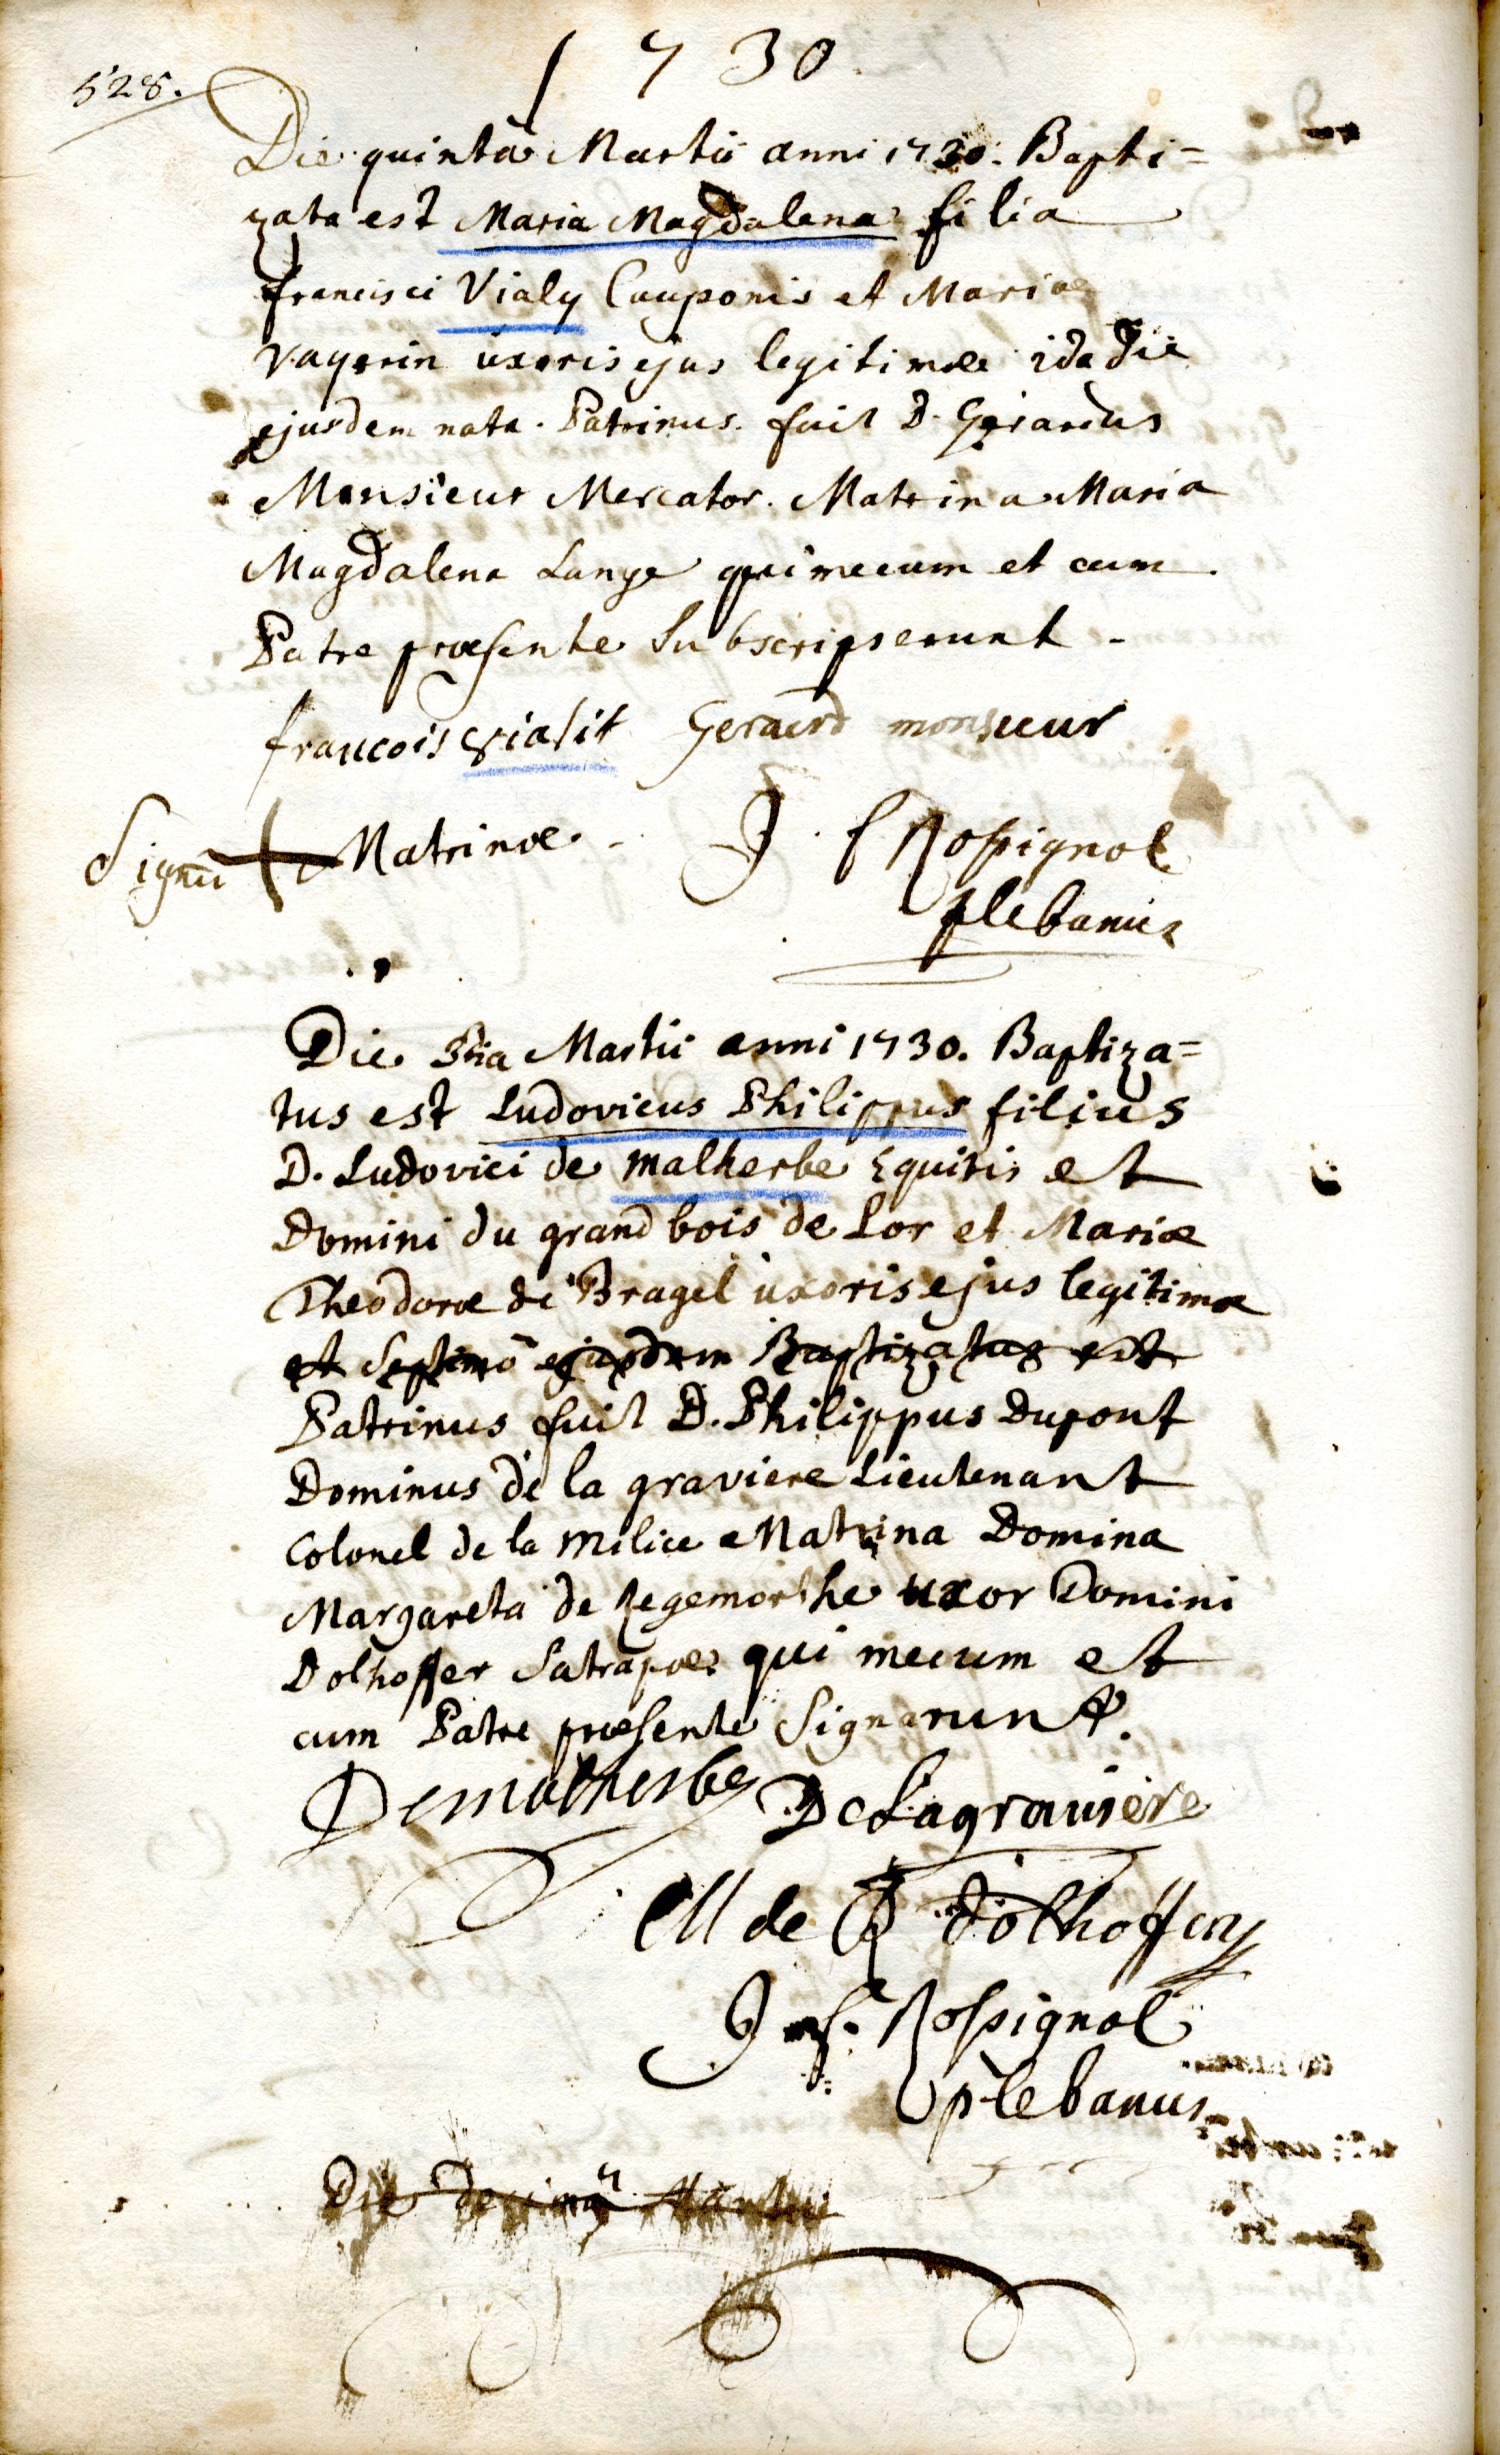 1730.
528.
Die quinta Martii anni 1730. Bapti=
zata est Maria Magdalena filia
francisci Vialy Cauponis et Mariae
Vagerin uxoris ejus legitimae ida die
ejusdem nata. Patrinus. fuit D. Gerardus
Monsieur Mercator. Matrina Maria
Magdalena Lange qui mecum et cum
Patre praesente Subscripserunt -
francois vialit Geraerd monsieur
Signū + Matrinae.
J. f Rossignol
plebanus
Die Martii anni 1730. Baptiza=
tus est Ludovicus Philippus filius
D. Ludovici de malherbe Equitis et
Domini du grand bois de Lor et Mariae
Theodorae de Bragel uxoris ejus legitimae
et Septimo ejusdem Baptizatus est
Patrinus fuit D. Philippus Dupont
Dominus de la graviere Lieutenant
Colonel de la milice Matrina Domina
Margareta de Regemorthe uxor Domini
Dolhoffer Satrapae qui mecum et
cum Patre praesente Signarunt.
Demalherbe DeLagraviere
M de R dolhoffen
J f. Rossignol
plebanus
Die Decima Martii